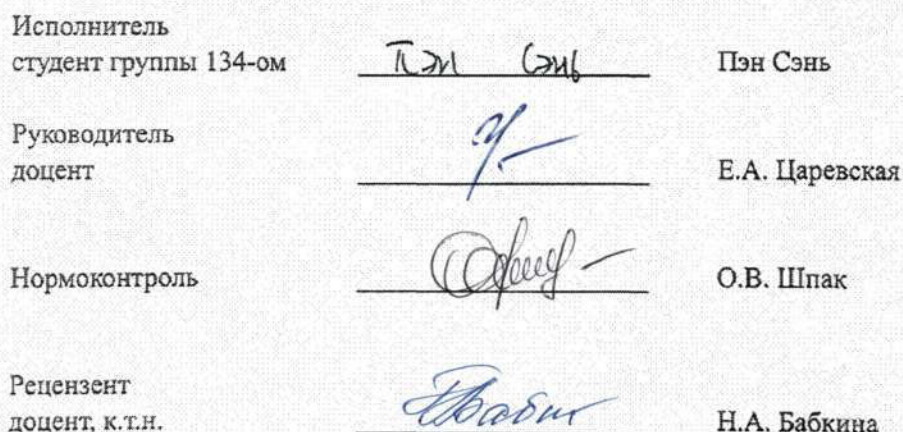 Исполнитель
студент группы 134-ом Пэн Сэнь Пэн Сэнь
Руководитель
доцент Е.А. Царевская
Нормоконтроль О.В. Шпак
Рецензент
доцент, к.т.н. Н.А. Бабкина